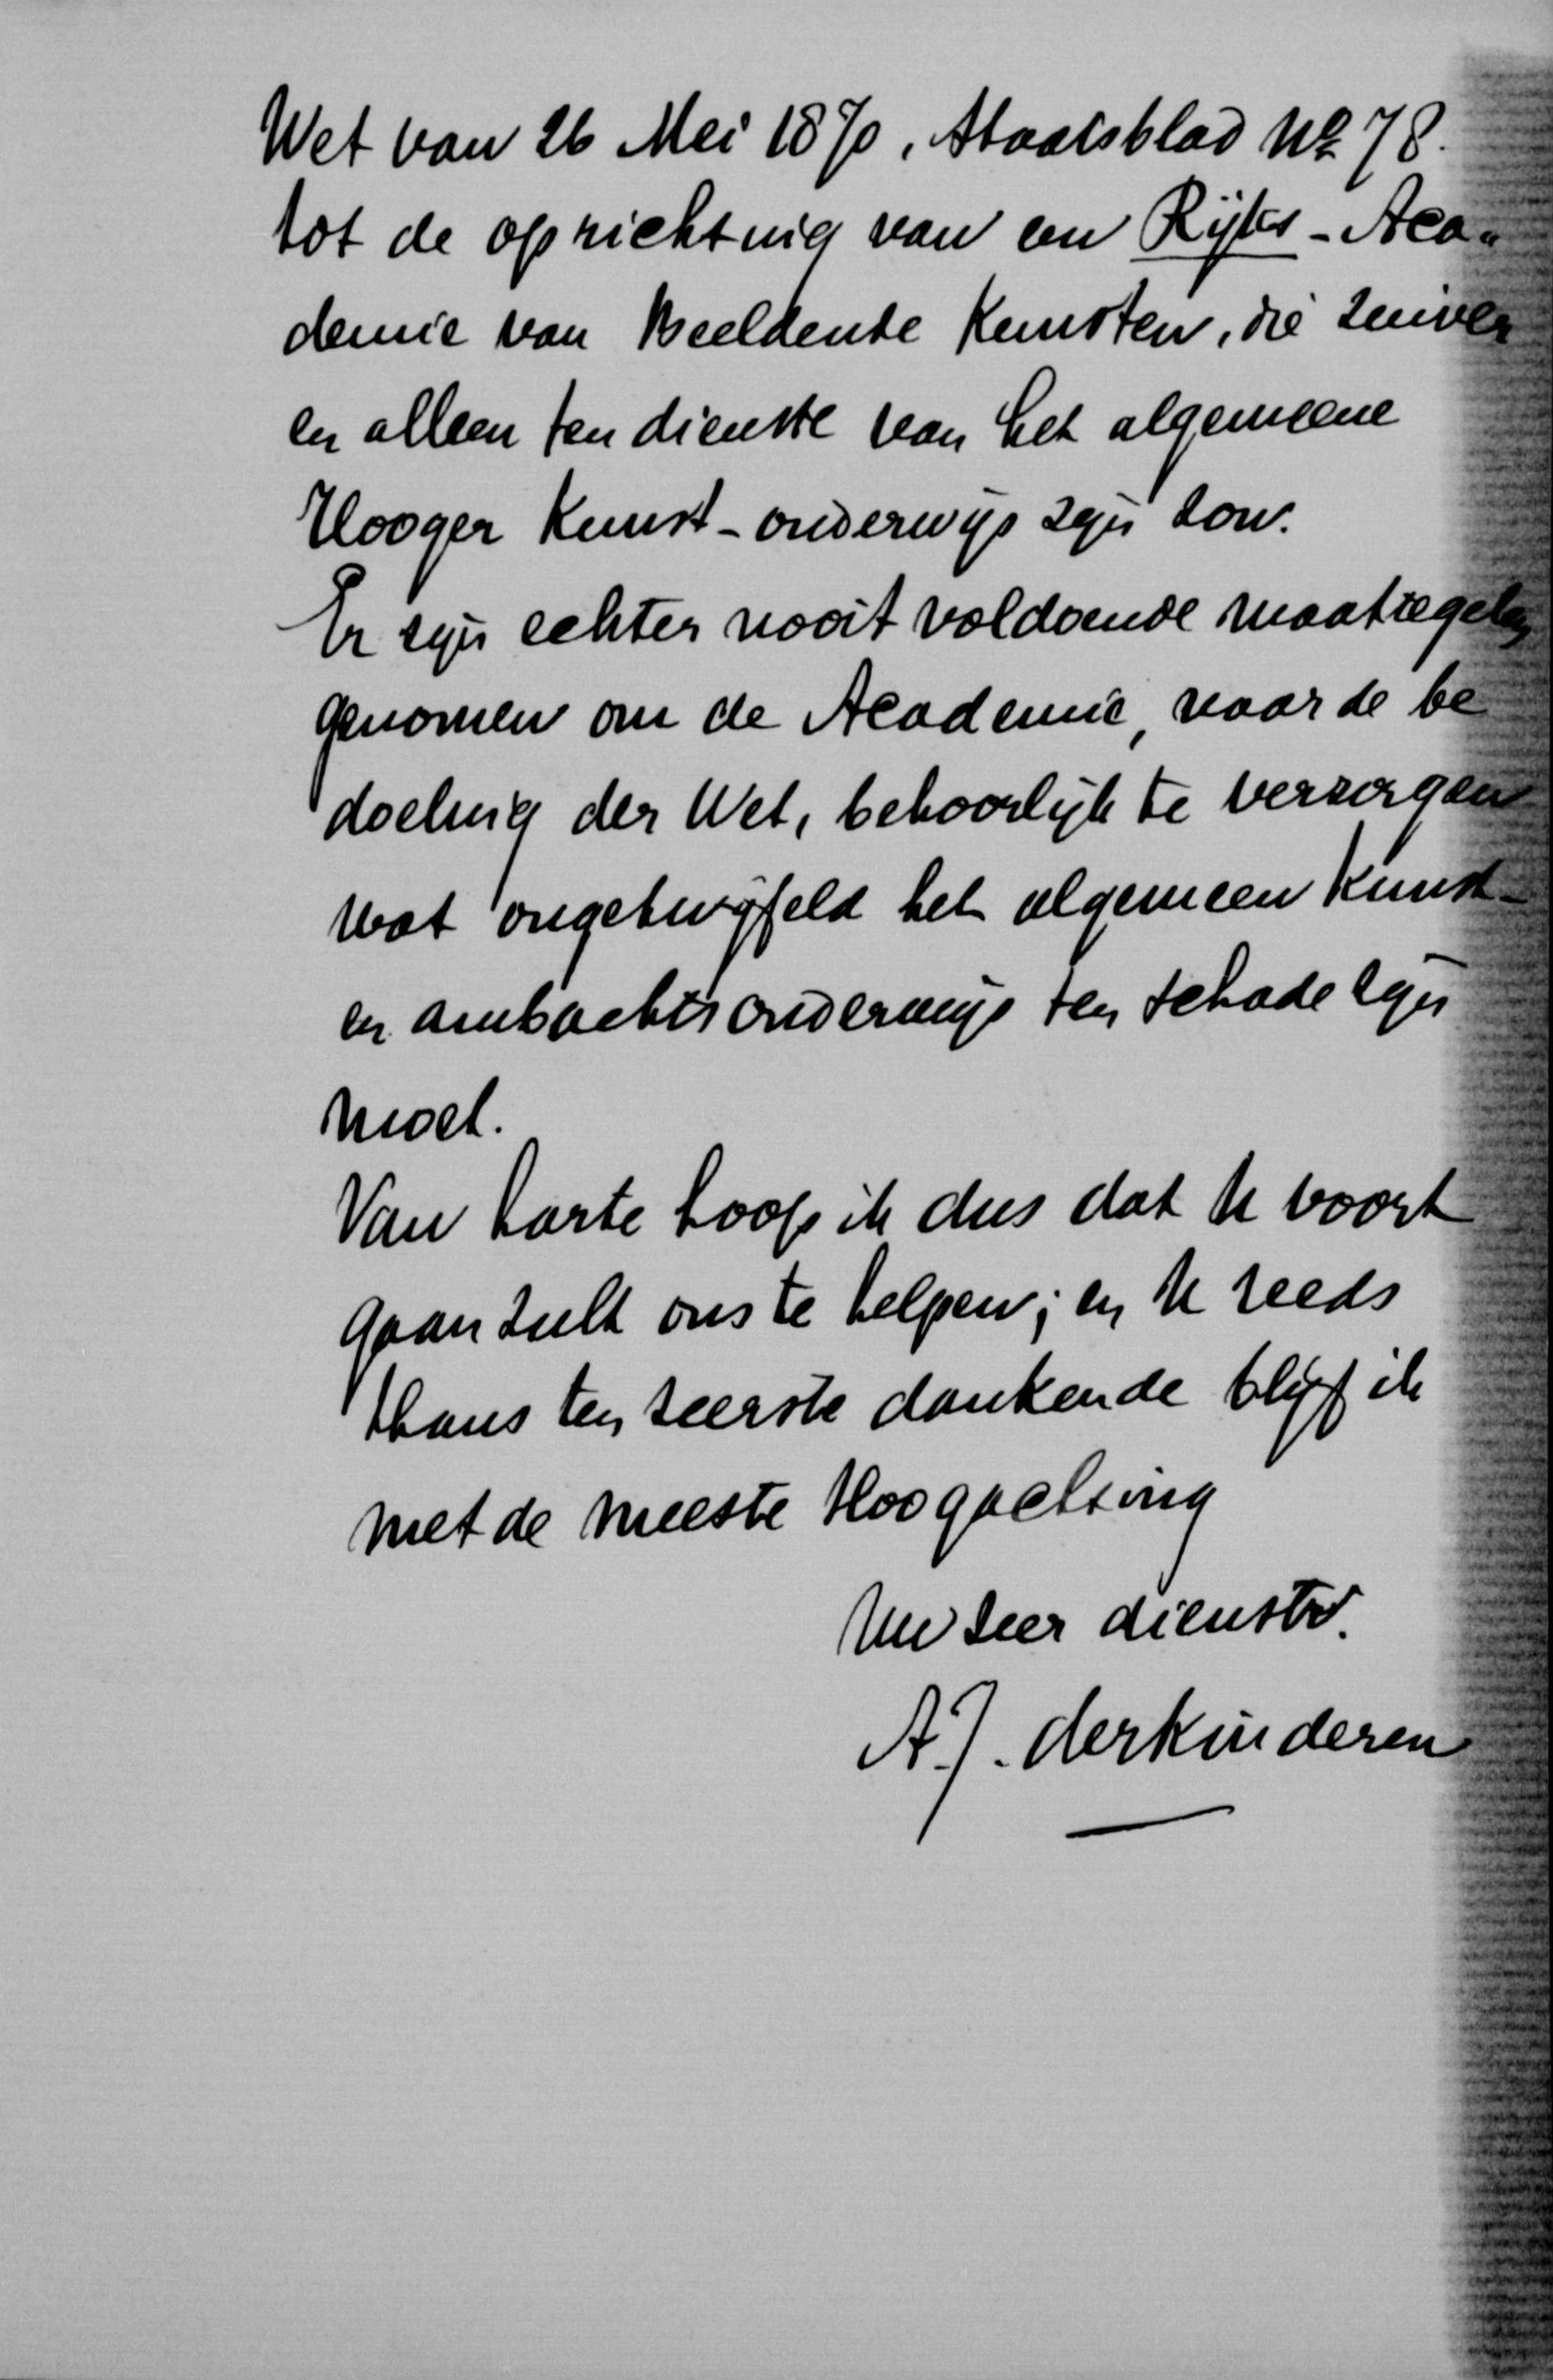 Wet van 26 Mei 1870, Staatsblad No 78.
tot de oprichting van een Rijks-Aca-
demie van Beeldende Kunsten, die zuiver
en alleen ten dienste van het algemeene
Hooger Kunst-onderwijs zijn zou.
Er zijn echter nooit voldoende maatregelen
genomen om de Academie, naar de be
doeling der Wet, behoorlijk te verzorgen
wat ongetwijfeld het algemeen Kunst-
en ambachtsonderwijs ten schade zijn
moet.
Van harte hoop ik dus dat U voort
gaan zult ons te helpen; en U reeds
thans ten zeerste dankende blijf ik
met de meeste Hoogachting
Uw zeer dienstw.
A.J. derkinderen